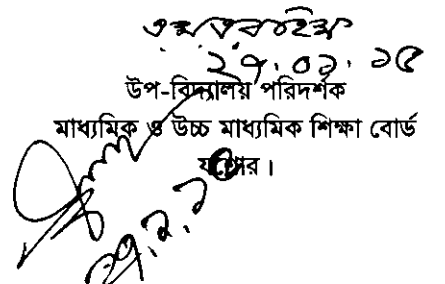 ২৭.০১.১৫
উপ-বিদ্যালয় পরিদর্শক
মাধ্যমিক ও উচ্চ মাধ্যমিক শিক্ষা বোর্ড
যশোর।
২৭.১.১৫